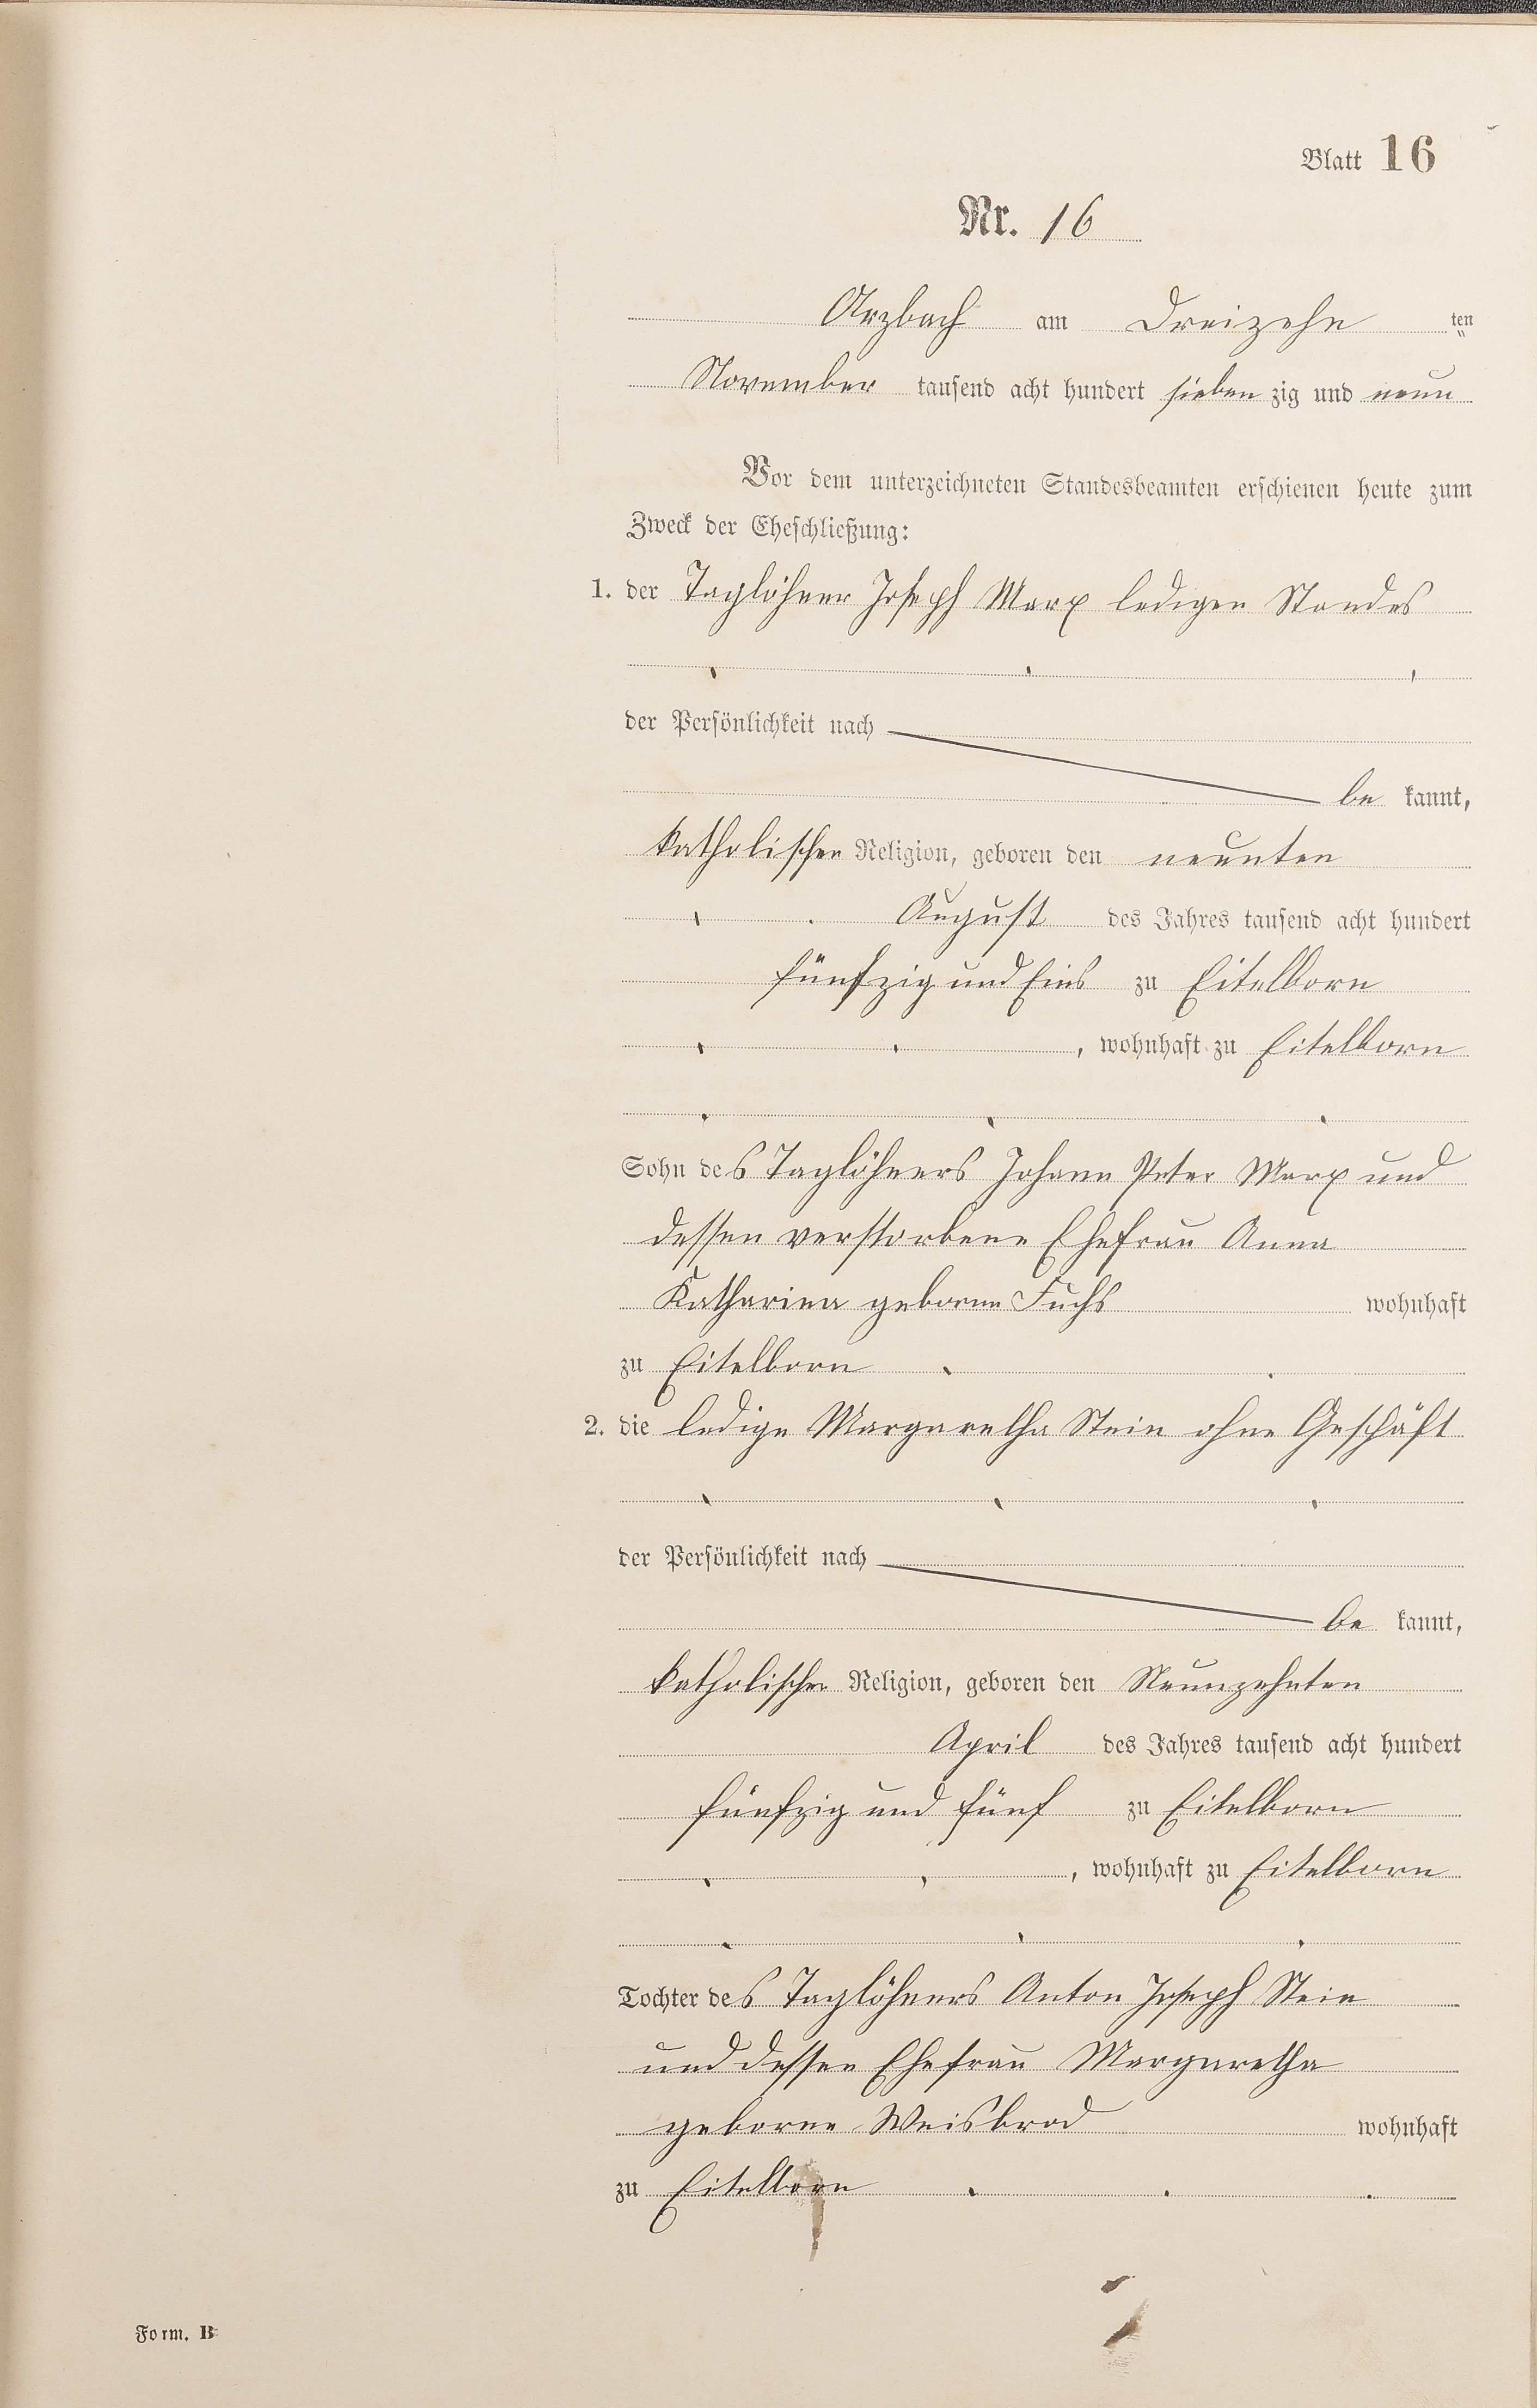 Blatt 16
Nr. 16
Arzbach am Dreizehn ten
November tausend acht hundert sieben zig und neun
Vor dem unterzeichneten Standesbeamten erschienen heute zum
Zweck der Eheschließung:
1. der Taglöhner Joseph Marx ledigen Standes
der Persönlichkeit nach
be kannt,
katholischer Religion, geboren den neunten
August des Jahres tausend acht hundert
fünfzig und Eins zu Eitelborn
, wohnhaft zu Eitelborn
Sohn des Taglöhners Johann Peter Marx und
dessen verstorbene Ehefrau Anna
Katharina geborne Fuchs wohnhaft
zu Eitelborn
2. die ledige Margaretha Stein ohne Geschäft
der Persönlichkeit nach
be kannt,
katholischer Religion, geboren den Neunzehnten
April des Jahres tausend acht hundert
fünfzig und fünf zu Eitelborn
, wohnhaft zu Eitelborn
Tochter des Taglöhners Anton Joseph Stein
und dessen Ehefrau Margaretha
geborne Weisbrod wohnhaft
zu Eitelborn
Form. B